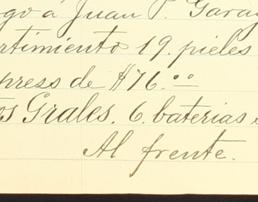 go á Juan P. Garay
rtimiento 19. pieles
press de $76.00
os Grales. 6. baterias
Al frente.